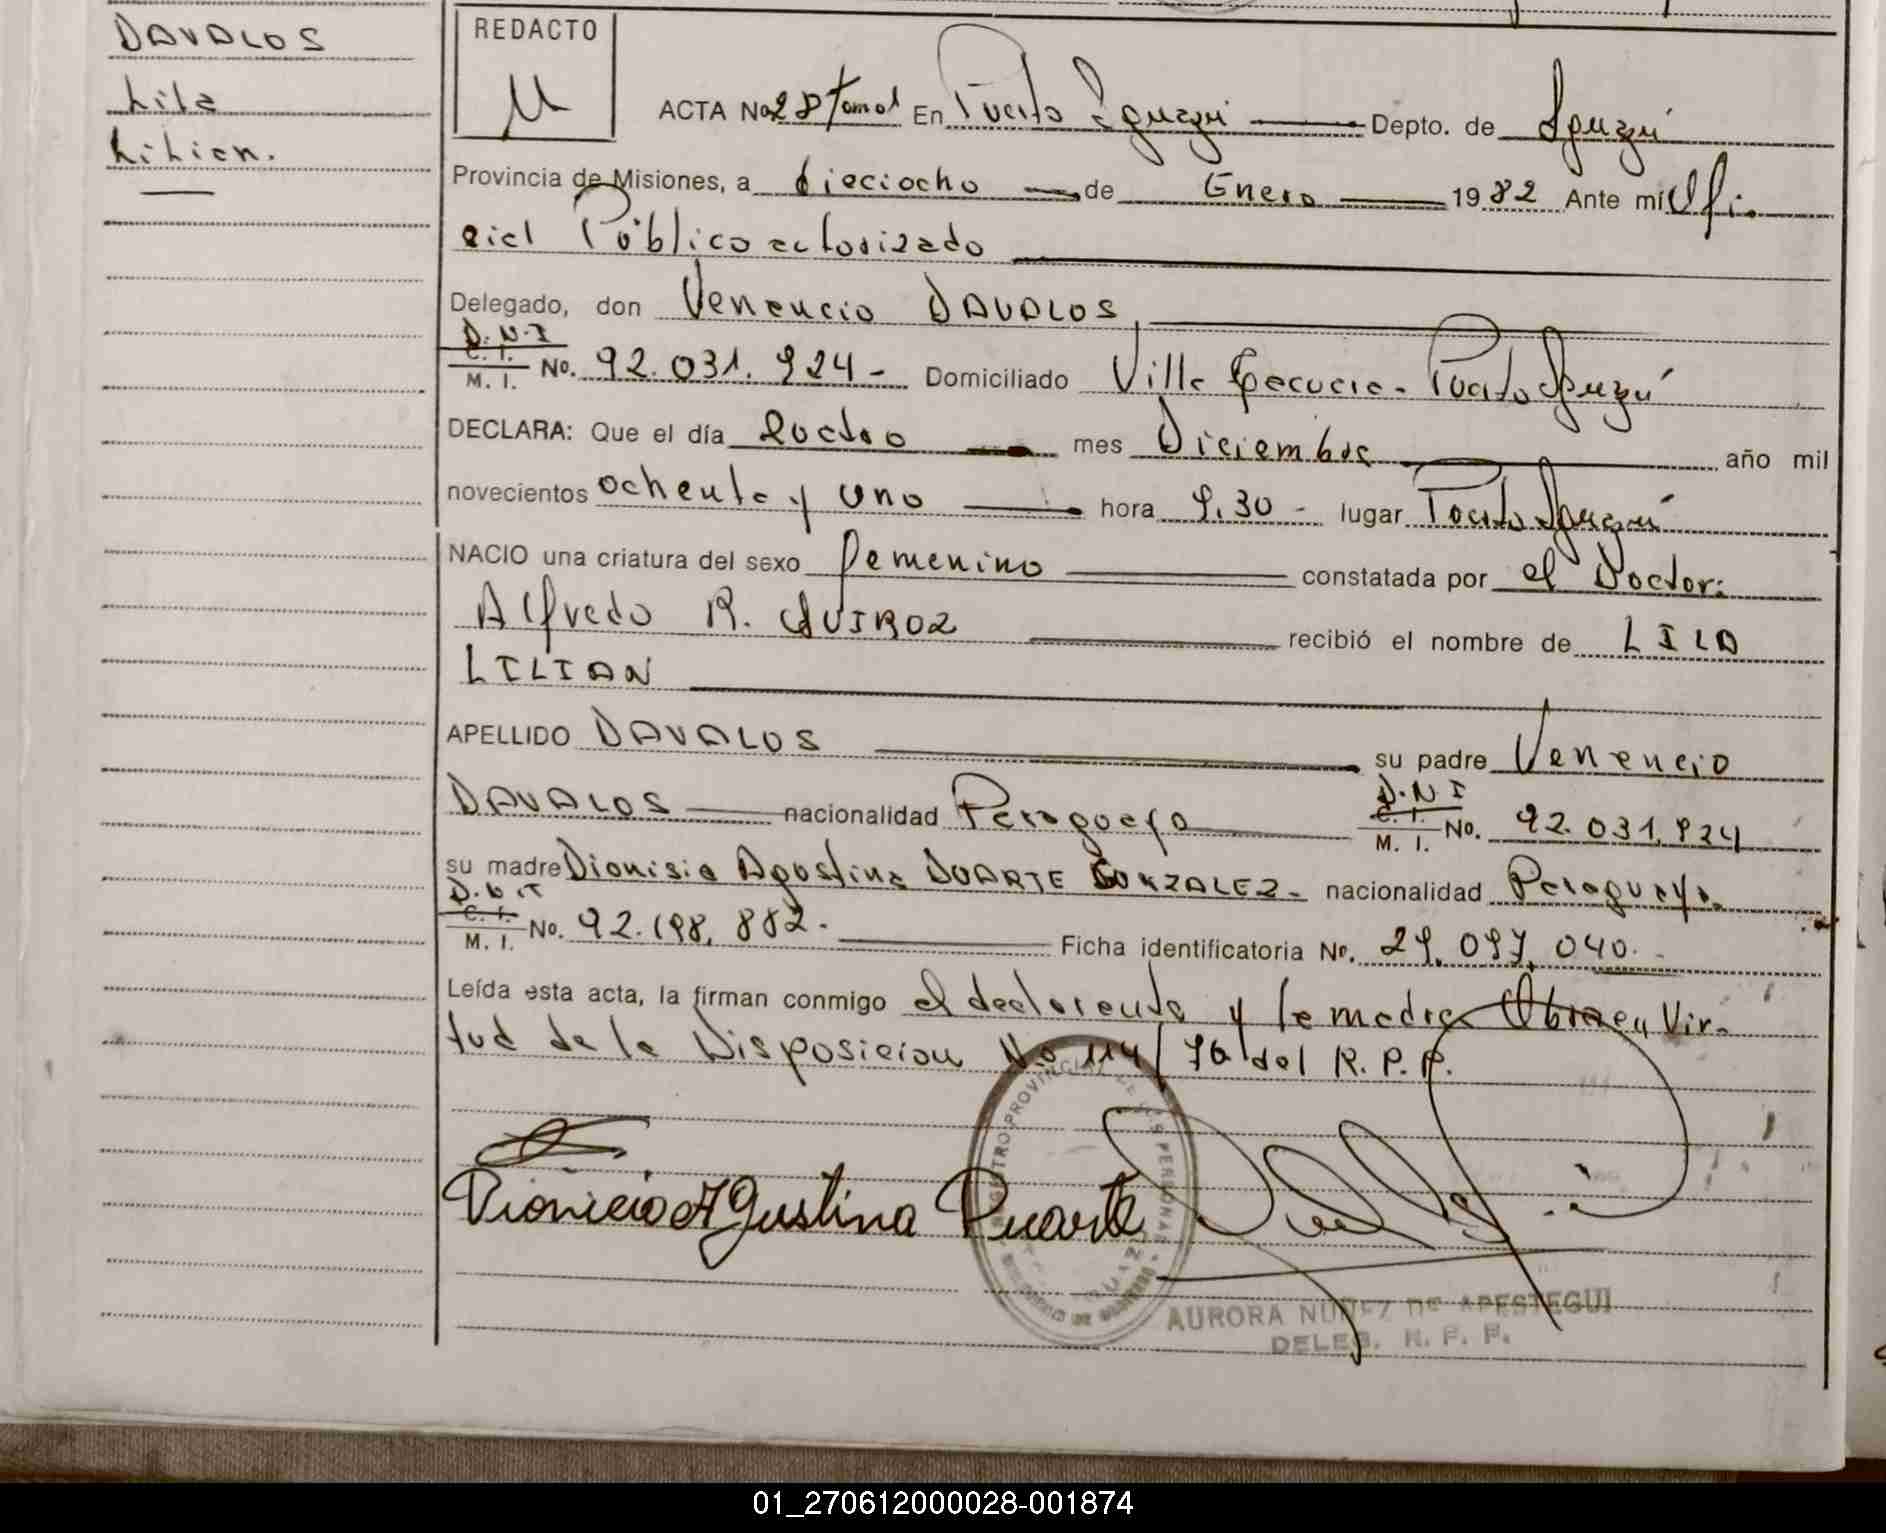 DAVALOS
Lila
Lilian.
REDACTO
ACTA No. 28 Tomo I En Puerto Iguazú Depto. de Iguazú
Provincia de Misiones, a dieciocho de Enero 1982 Ante mi Ofi-
cial Público autorizado
Delegado, don Venancio DAVALOS
D.N.I
C. I.
M. I. No. 92.031.924- Domiciliado Villa Puerto Iguazú
DECLARA: Que el día cuatro mes Diciembre año mil
novecientos ochenta y uno hora 9,30 - lugar Puerto Iguazú
NACIO una criatura del sexo femenino constatada por el Doctor:
Alfredo R. QUIROZ recibió el nombre de LILA
LILIAN
APELLIDO DAVALOS su padre Venancio
DAVALOS nacionalidad Paraguaya D.N.I C. I. M. I. No. 92.031.924
su madre Dionisia Agostina DUARTE GONZALEZ- nacionalidad Paraguaya.
D.N.I
C. I.
M. I. No. 92.198.882- Ficha identificatoria No. 29.097.040.-
Leída esta acta, la firman conmigo el declarante y la madre Obra en Vir-
tud de la Disposicion No 114/76 del R.P.P.
REGISTRO PROVINCIAL DE LAS PERSONAS
Dionicia Agustina Duarte
AURORA NUÑEZ DE APESTEGUI
DELEG. R. P. P.
01_270612000028-001874